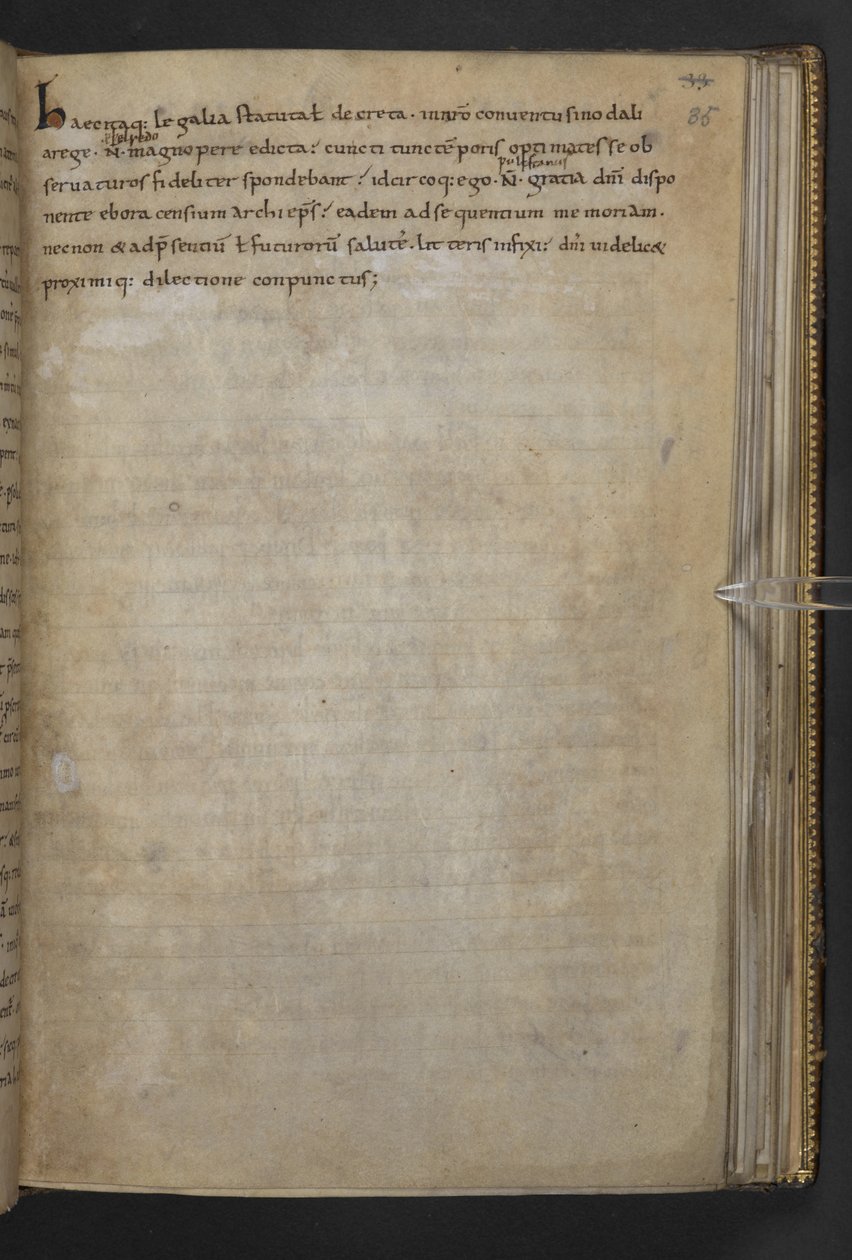 39
35
Haec itaq: legalia statuta ł decreta . in nr̄o conventu sinodali
a rege . N̄ . magnopere edicta ; cuncti tunc tēporis optimates se ob
æþelredo
servaturos fideliter spondebant ; idcircoq: ego . N̄ . gratia dn̄i dispo
pulfstanus
nente eboracensium archiep̄s ; eadem ad sequentium memoriam .
necnon & ad p̄sentiū ł futurorū salutē . litteris infixi ; dn̄i videlic&
proximiq: dilectione conpunctus ;